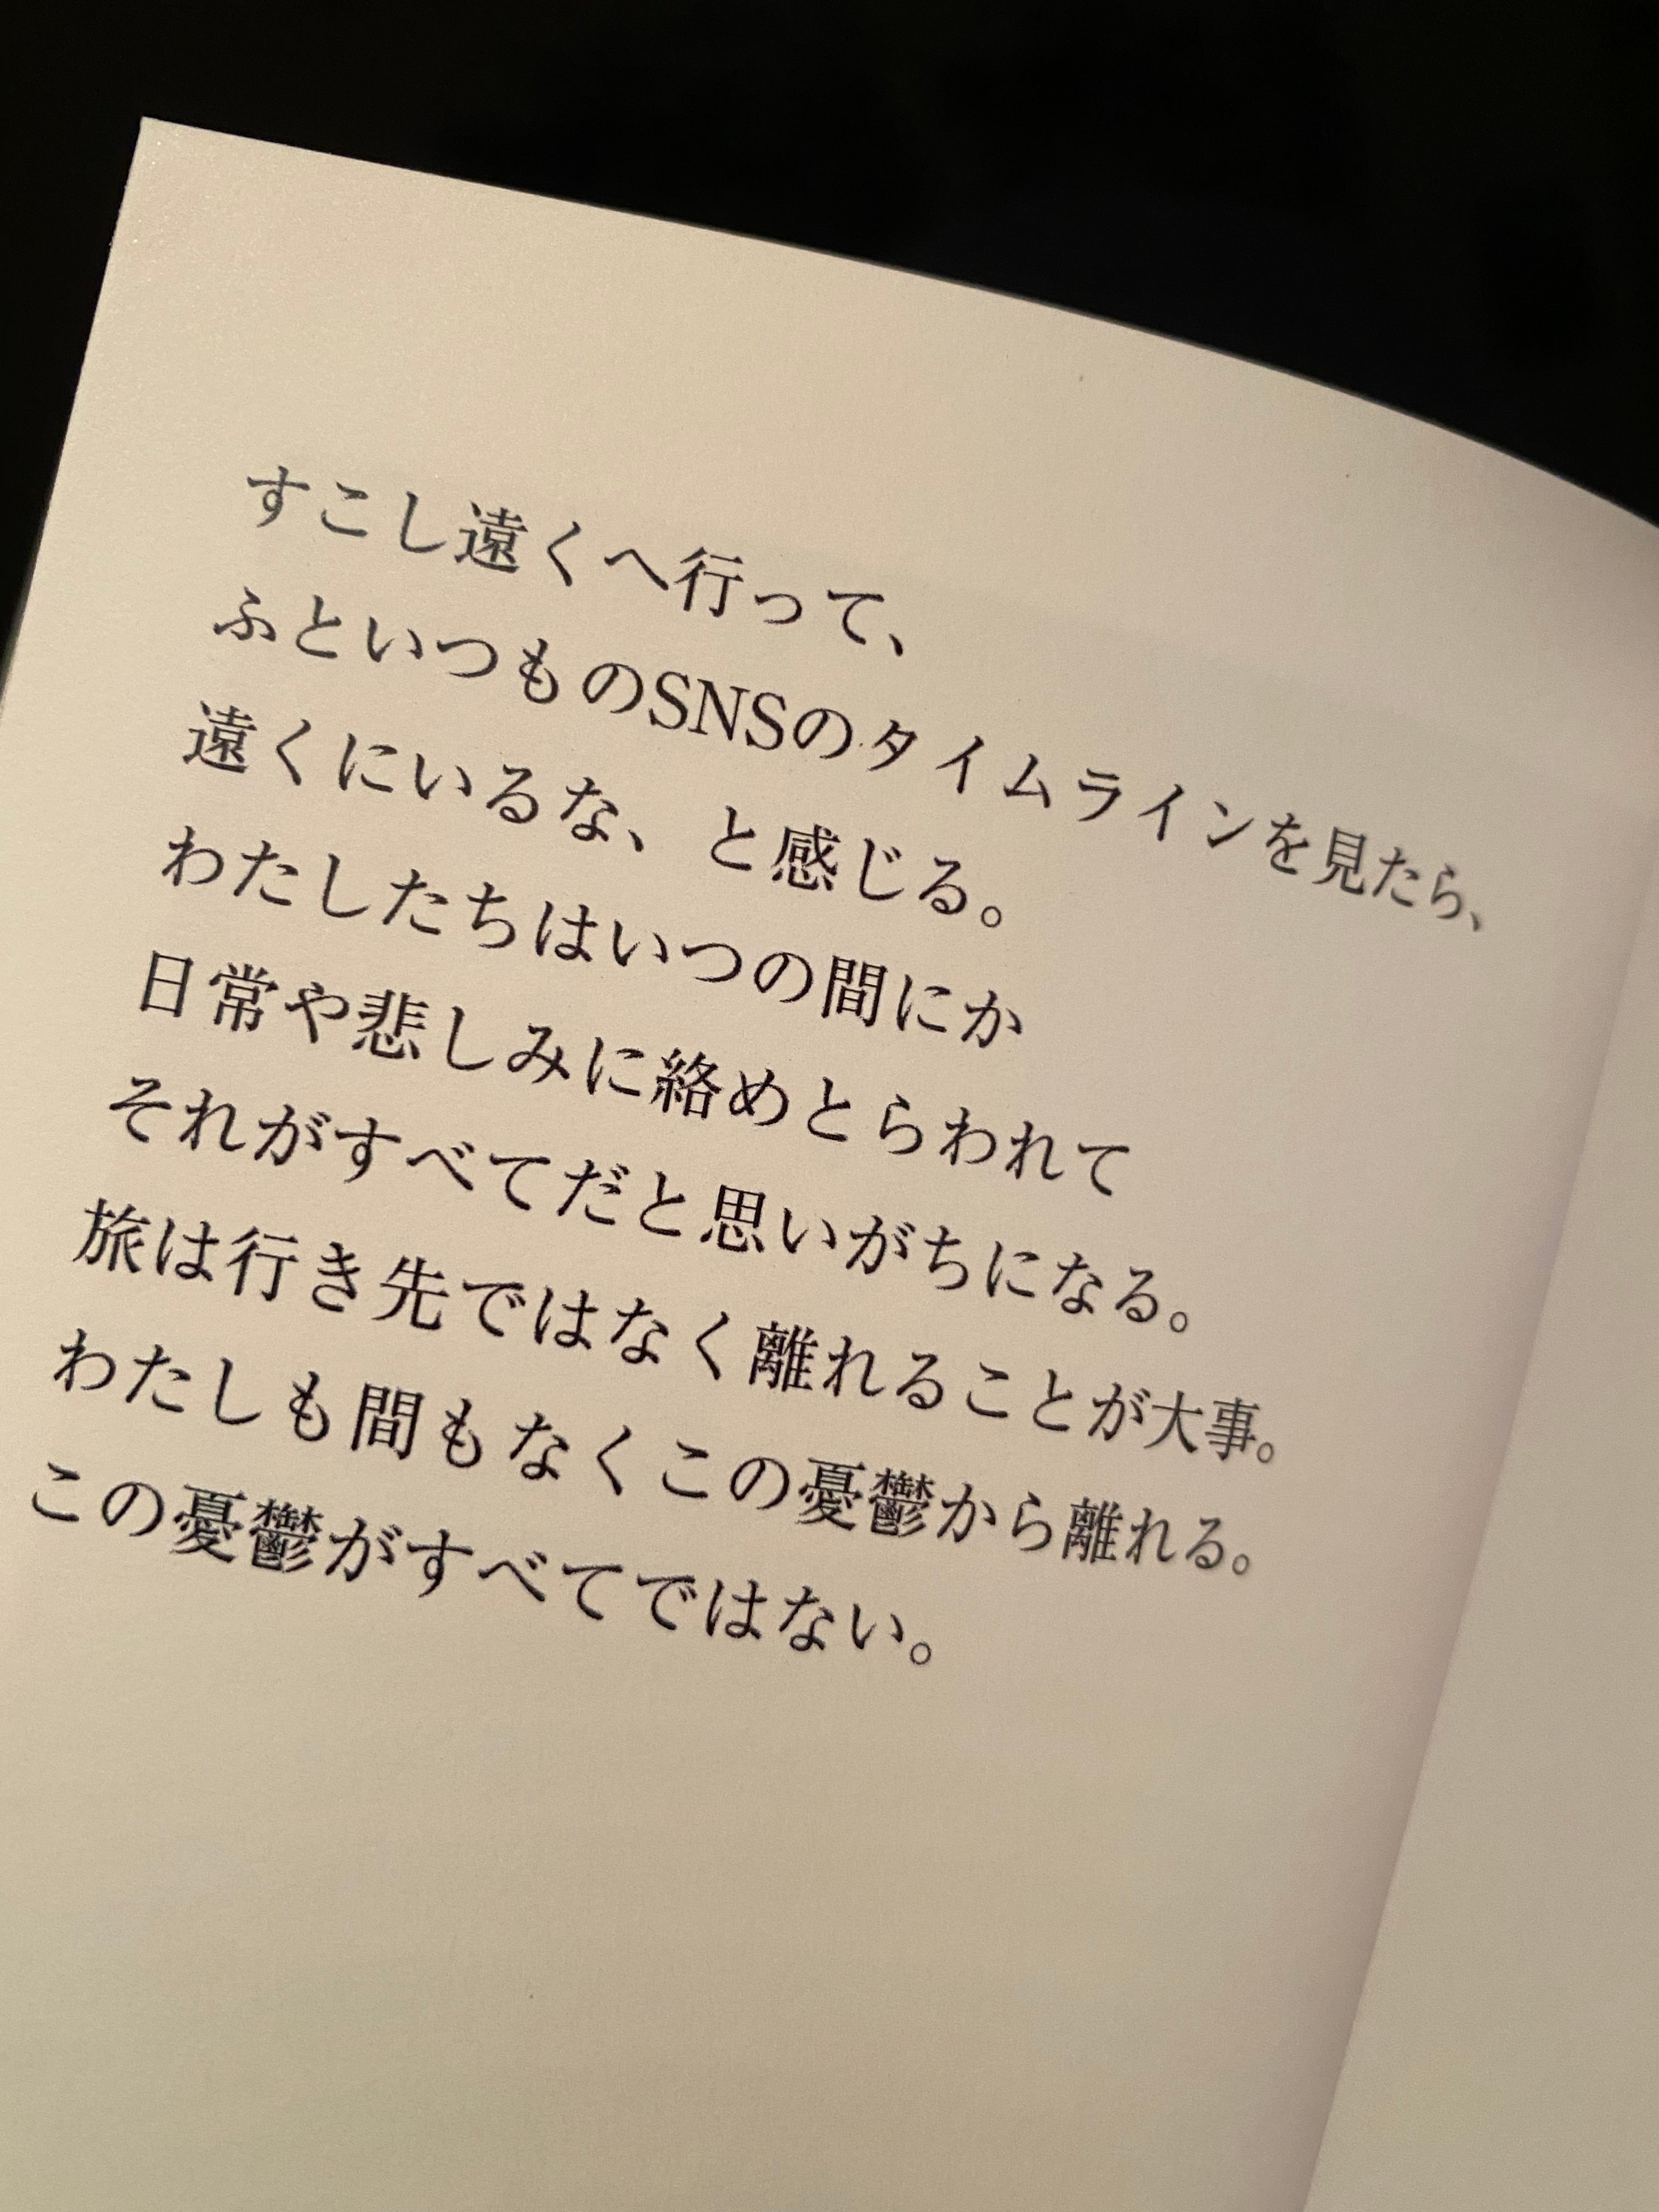 すこし遠くへ行って、
ふといつものSNSのタイムラインを見たら、
遠くにいるな、と感じる。
わたしたちはいつの間にか
日常や悲しみに絡めとらわれて
それがすべてだと思いがちになる。
旅は行き先ではなく離れることが大事。
わたしも間もなくこの憂鬱から離れる。
この憂鬱がすべてではない。